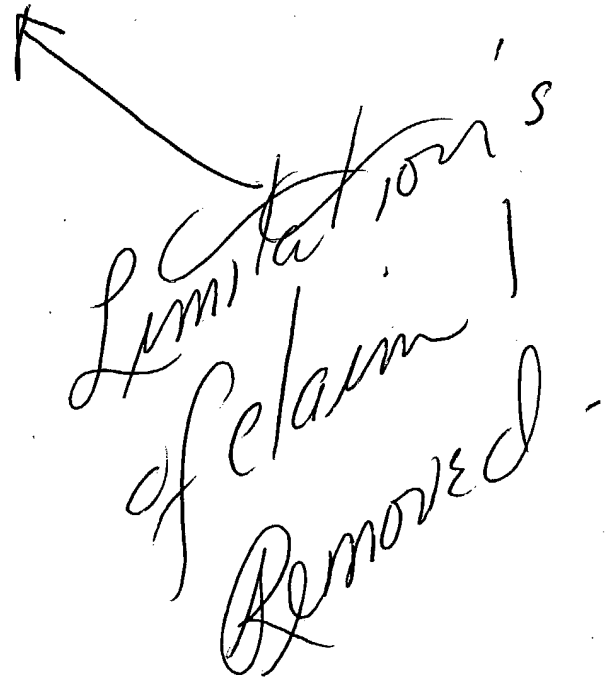 Limitation's
of claim 1
Removed